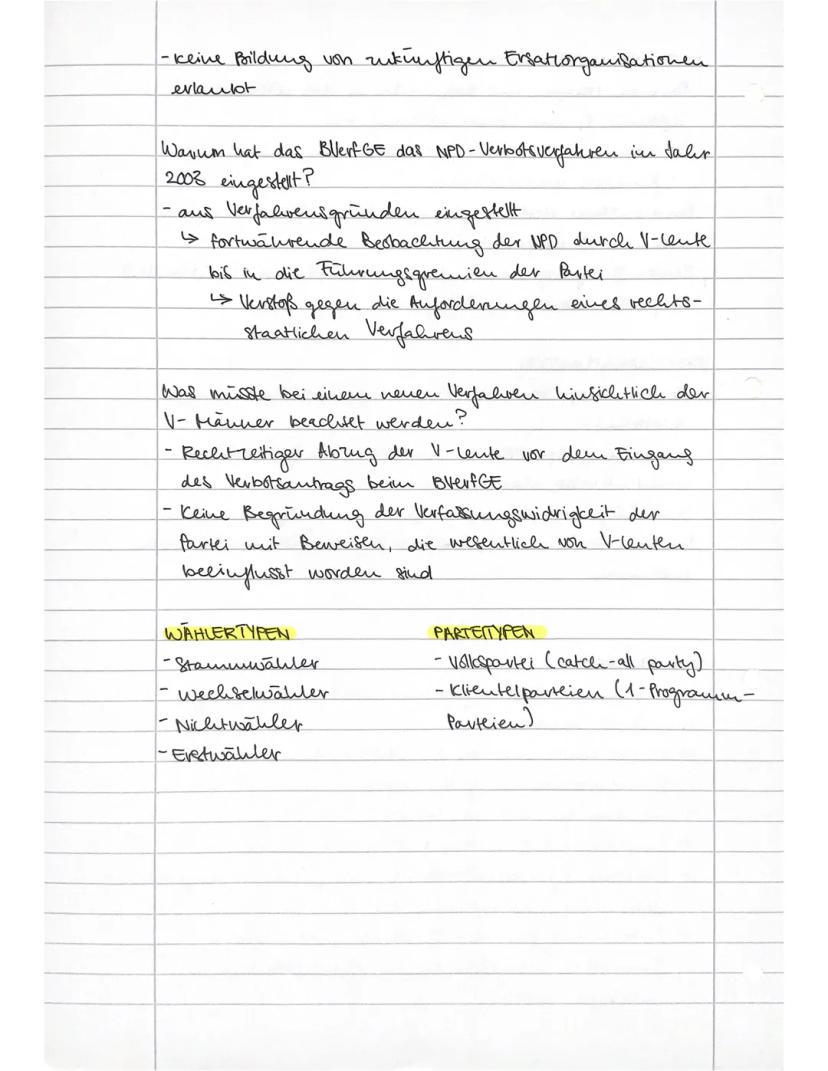 - keine Bildung von zukünftigen Ersatzorganisationen
erlaubt
Warum hat das BVerfGE das NPD-Verbotsverfahren im Jahr
2003 eingestellt?
- aus Verfahrensgründen eingestellt
↳ fortwährende Beobachtung der NPD durch V-Leute
bis in die Führungsgremien der Partei
↳ Verstoß gegen die Anforderungen eines rechts-
staatlichen Verfahrens
Was müsste bei einem neuen Verfahren hinsichtlich der
V-Männer beachtet werden?
- Rechtzeitiger Abzug der V-Leute vor dem Eingang
des Verbotsantrags beim BVerfGE
- Keine Begründung der Verfassungswidrigkeit der
Partei mit Beweisen, die wesentlich von V-Leuten
beeinflusst worden sind
WÄHLERTYPEN
- Stammwähler
- Wechselwähler
- Nichtwähler
- Erstwähler
PARTEITYPEN
- Volkspartei (catch-all party)
- Klientelparteien (1-Programm-
Parteien)